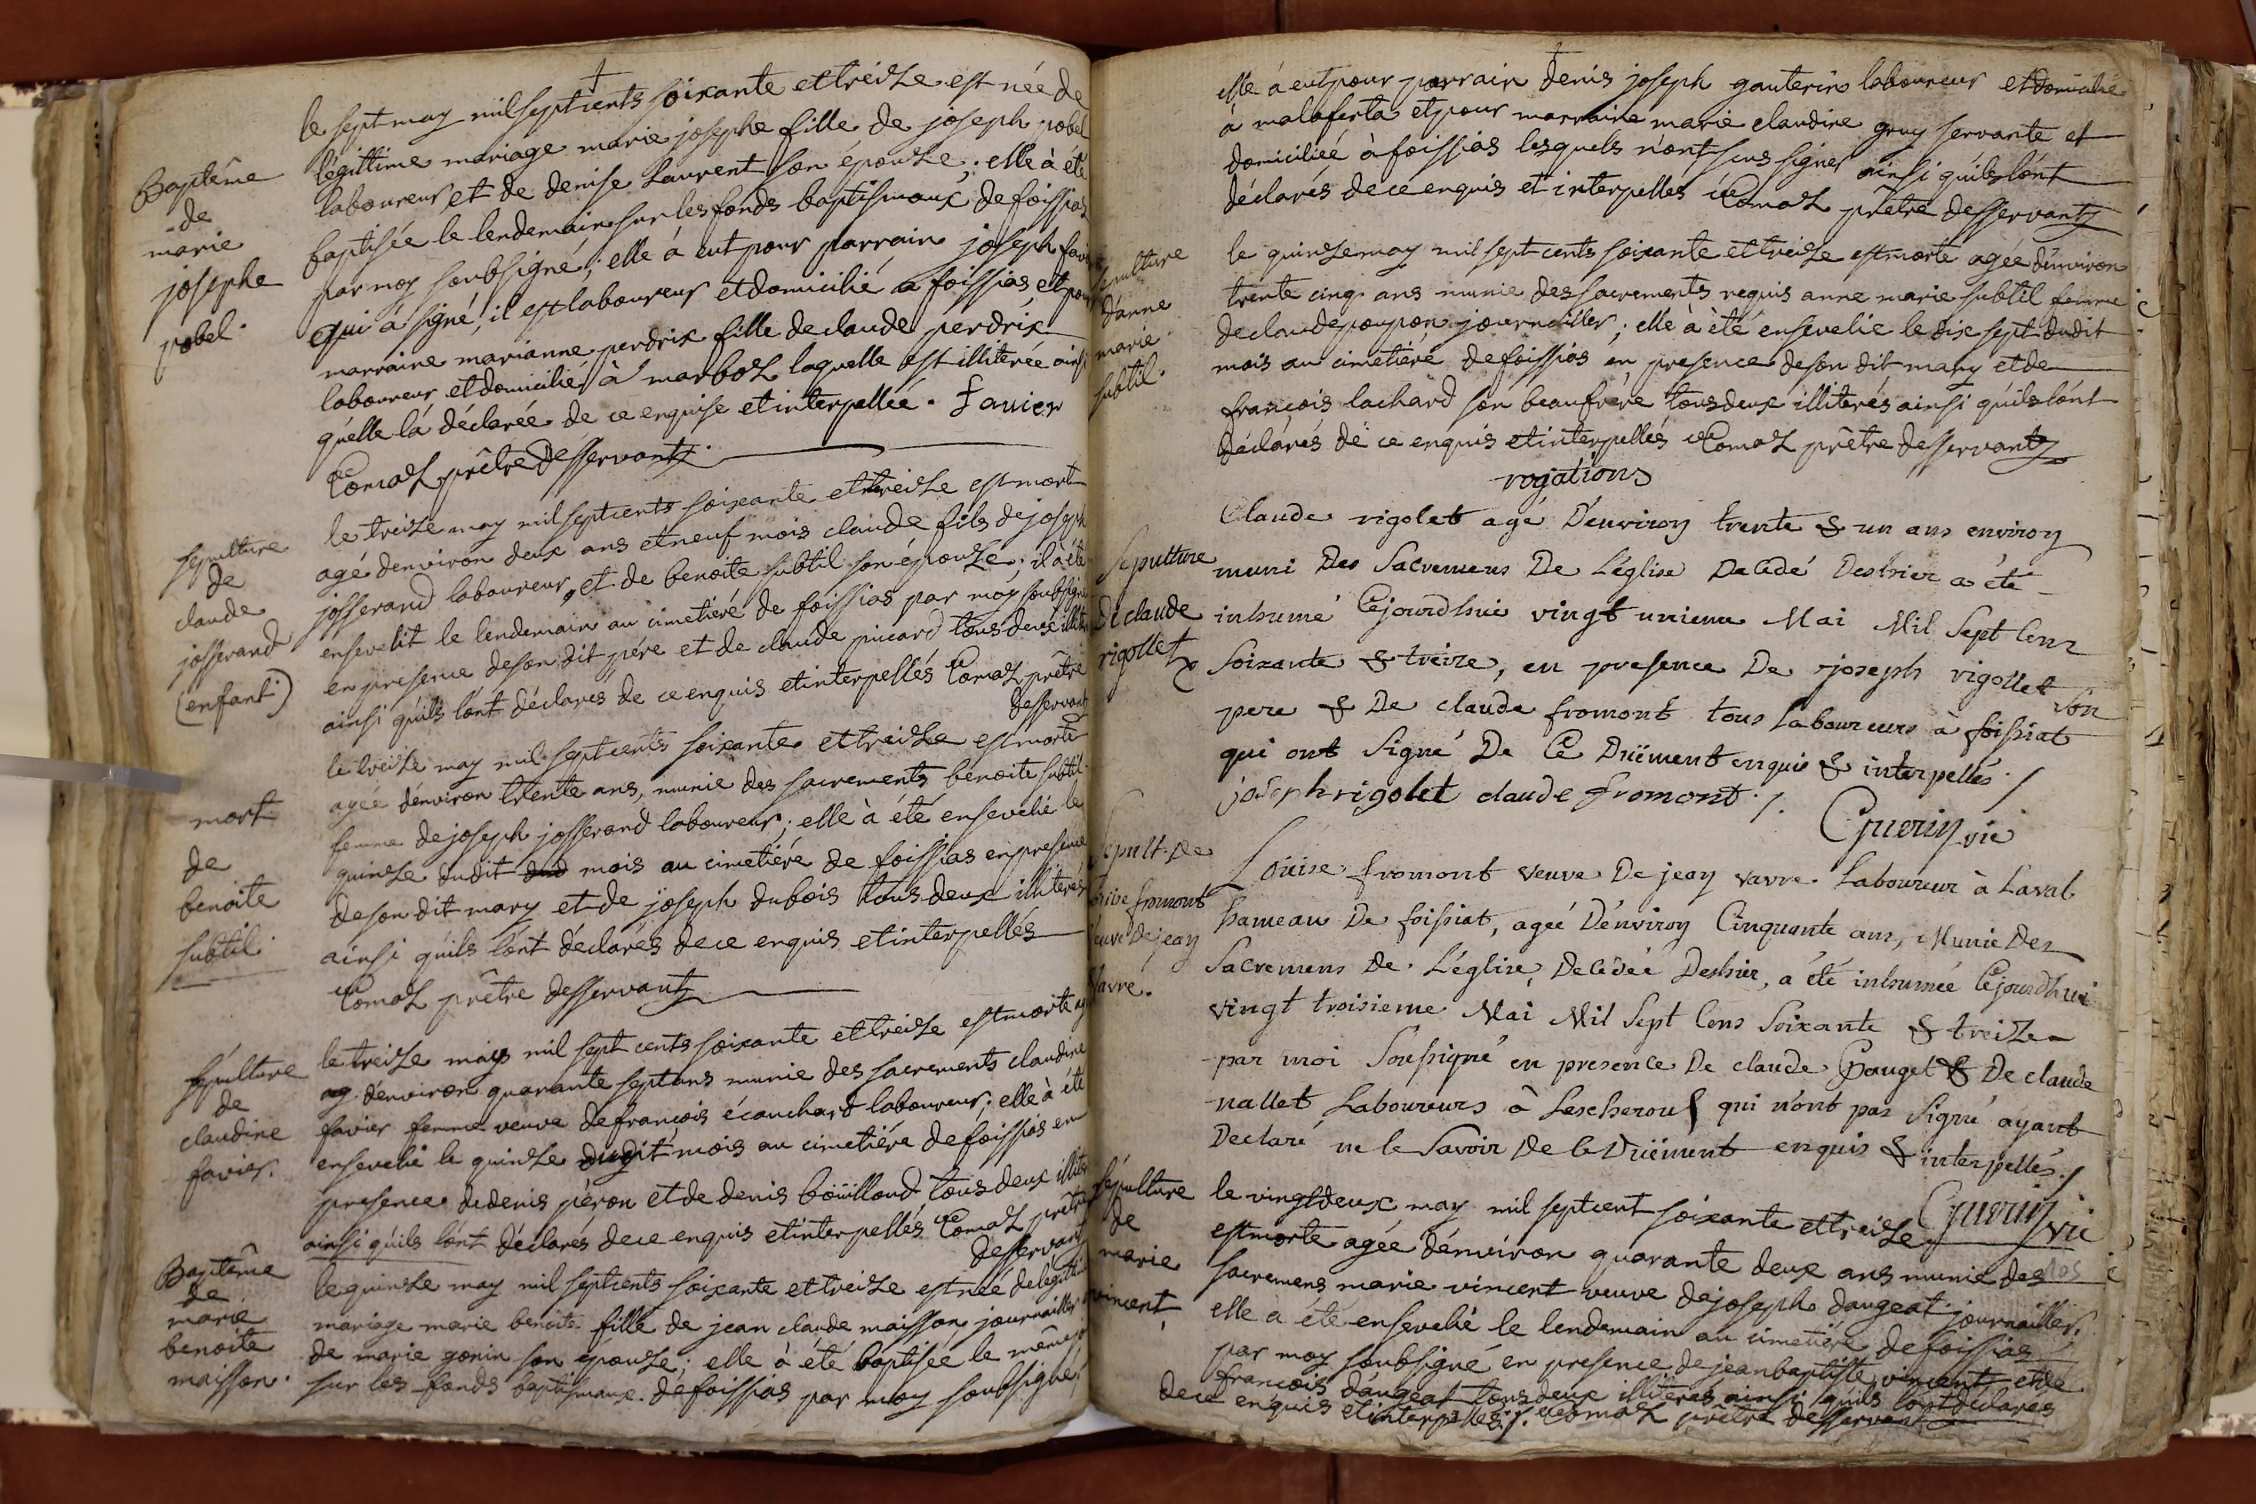 Baptême
de
marie
josephe
pobel.
le sept may mil sept cents soixante et treize est née de
légittime mariage marie josephe fille de joseph pobel
laboureur et de denise Laurent son épouse ; elle à été
baptisée le lendemain sur les fonds baptismaux de foissias
par moy soubsigné ; elle à eut pour parrain joseph favier
qui à signé, il est laboureur et domicilié a foissias et pour
marraine marianne perdrix fille de claude perdrix
laboureur et domicilié à marboz laquelle est illiterée ainsi
qu'elle la déclarée de ce enquise et interpellée. favier
Comaz prêtre desservant
sepulture
de
claude
josserand
(enfant)
le treize may mil sept cents soixante et treize est mort
agé denviron deux ans et neuf mois claude fils de joseph
josserand laboureur et de benoite subtil son épouse ; il à été
ensevelit le lendemain au cimetiére de foissias par moy soubsigné
en presence de son dit pére et de claude picard tous deux
ainsi quils lont déclarés de ce enquis et interpellés Comaz prêtre
desservant
mort
de
benoite
subtil.
le treize may mil sept cents soixante et treize est morte
agée d'environ trente ans, munie des sacrements benoite subtil
femme de joseph josserand laboureur ; elle à été ensevelié le
quinze dudit mois au cimetiére de foissias en presence
de son dit mary et de joseph dubois tous deux illiterés
ainsi qu'ils lont déclarés de ce enquis et interpellés
Comaz prêtre desservant
sepulture
de
claudine
favier.
le treize may mil sept cents soixante et treize est morte
ag. denviron quarante sept ans munie des sacrements claudine
favier femme veuve de francois écanchard laboureur ; elle à été
ensevelié le quinze dudit mois au cimetiére de foissias en
presence de denis péron et de denis boüilloud tous deux
ainsi quils lont déclarés de ce enquis et interpellés Comaz prêtre
desservant
Baptême
de
marie
benoite
maisson.
le quinze may mil sept cents soixante et treize est née de legittime
mariage marie benoite fille de jean claude maisson journailler
de marie gonin son épouse ; elle à été baptisée le même
sur les fonds baptismaux de foissias par moy soubsigné
elle à eut pour parrain denis joseph gauterin laboureur et domicilié
à malaferta et pour marraine marie claudine gruy servante et
domiciliée à foissias lesquels n'ont sus signer ainsi quils lont
déclarés de ce enquis et interpellés Comaz prêtre desservant
sepulture
d'anne
marie
subtil.
le quinze may mil sept cents soixante et treize est morte agée d'environ
trente cinq ans munie des sacrements requis anne marie subtil femme
de claude poupon journailler ; elle à été ensevelie le dix sept dudit
mois au cimetiére de foissias en presence de son dit mary et de
françois lachard son beaufrére tous deux illiterés ainsi qu'ils lont
déclarés de ce enquis et interpellés Comaz prêtre desservant
rogations
Sepulture
De claude
rigollet
Claude rigolet agé D'environ trente & un ans environ
muni Des Sacremens De L'église Décédé Deshier a été
inhumé Cejourdhui vingt unieme Mai Mil Sept Cens
Soixante & treize, en presence De joseph rigollet Son
pere & De claude fromont tous Laboureurs à foissiat
qui ont Signé De Ce Duëment enquis & interpellés ./
joseph rigolet claude fromont ./
Guerin vic
Sepult. De
Loüise fromont
veuve De jean
Vavre.
Loüise fromont veuve De jean vavre Laboureur à Laval
hameau De foissiat, ageé D'environ Cinquante ans, Munie Des
Sacremens De L'église, Decédée Deshier, a été inhumée Cejourdhui
vingt troisieme Mai Mil Sept Cens Soixante & treize
par moi Soussigné en presence De claude Pauget & De claude
nallet Laboureurs à Lescheroux qui n'ont pas Signé ayant
Declaré ne le Savoir De Ce Duëment enquis & interpellés ./
Guerin vic
sépulture
de
marie
vincent
le vingt deux may mil sept cent soixante et treize
est morte agée d'environ quarante deux ans munie des
sacremens marie vincent veuve de joseph dangeat journailler.
elle a été ensevelié le lendemain au cimetiére de foissias
par moy soubsigné en presence de jean baptiste vincent et de
francois dangeat tous deux illiteres ainsi quils lont declarés
de ce enquis et interpellés ./. Comaz prêtre desservant